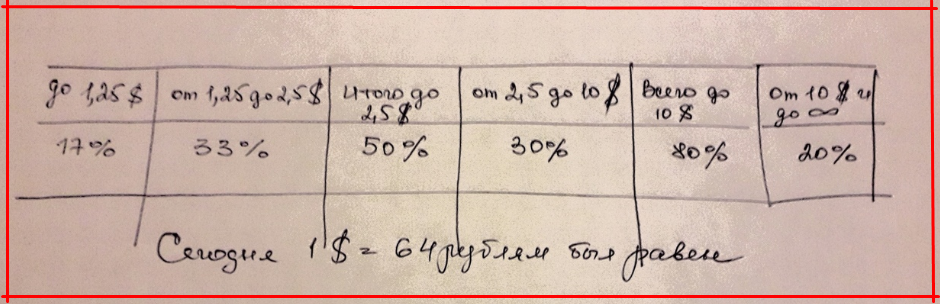 до 1,25 $ от 1,25 до 2,5 $ Итого до 2,5 $ от 2,5 до 10 $ Всего до 10 $ от 10 $ и до ∞
17% 33% 50% 30% 80% 20%
Сегодня 1 $ = 64 рублям был равен